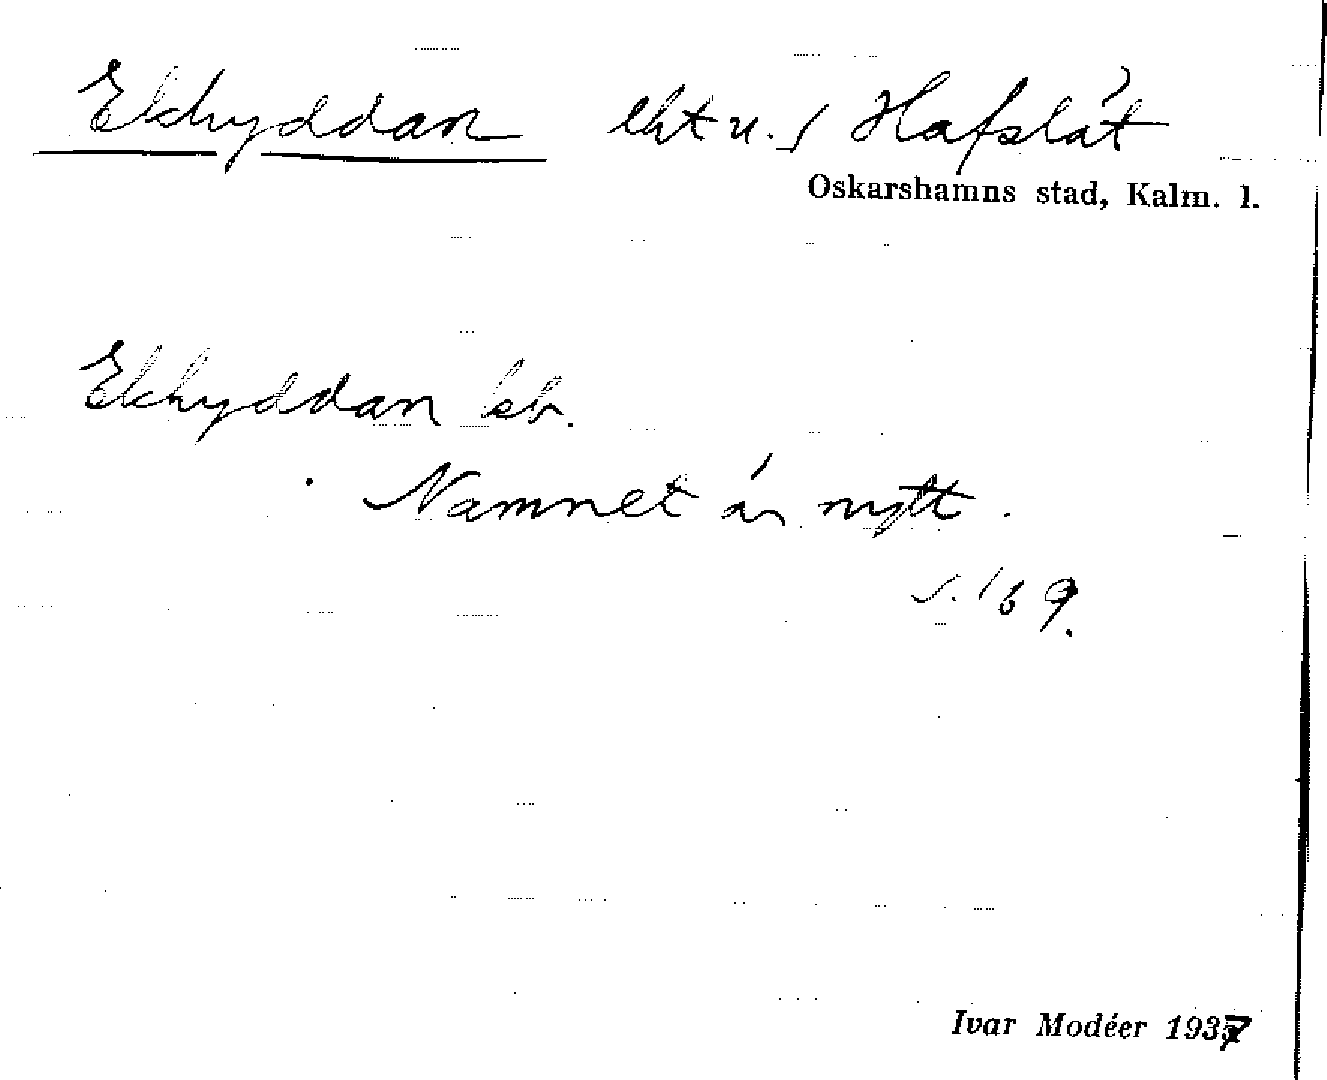 Ekhyddan lht u. Hafslåt
Oskarshamns stad, Kalm. l.
Ekhyddan
Namnet är nytt.
s. 169.
Ivar Modéer 1937